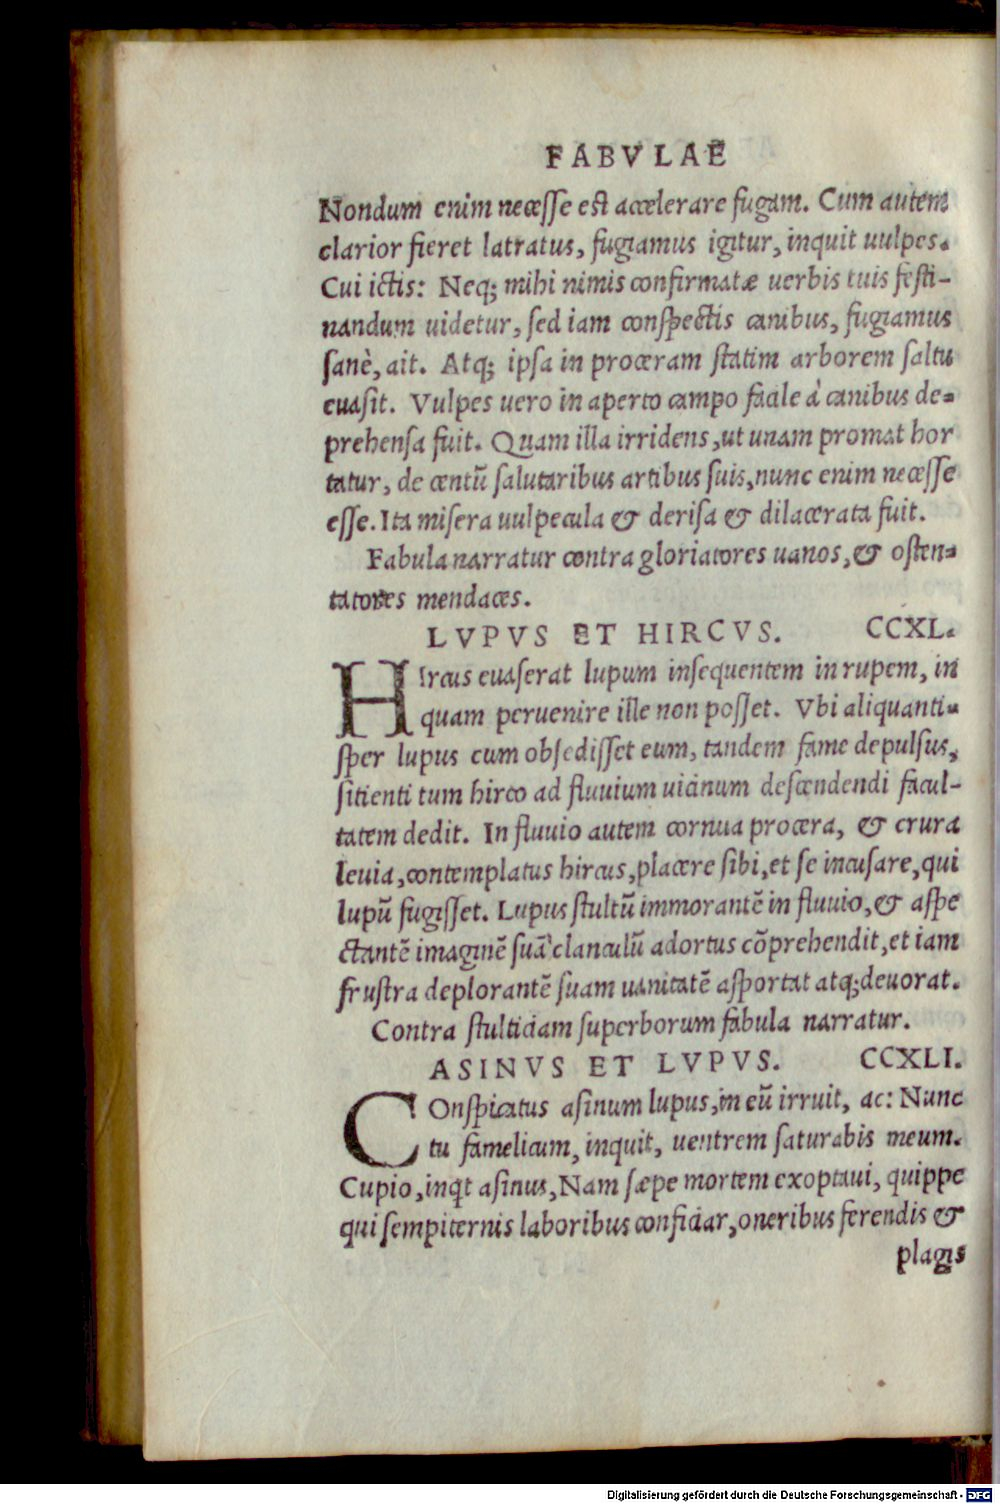 FABVLAE
Nondum enim necesse est accelerare fugam. Cum autem
clarior fieret latratus, fugiamus igitur, inquit uulpes.
Cui ictis: Neq; mihi nimis confirmatæ uerbis tuis festi-
nandum uidetur, sed iam conspectis canibus, fugiamus
sanè, ait. Atq; ipsa in proceram statim arborem saltu
euasit. Vulpes uero in aperto campo facile à canibus de-
prehensa fuit. Quam illa irridens, ut unam promat hor
tatur, de centũ salutaribus artibus suis, nunc enim necesse
esse. Ita misera uulpecula & derisa & dilacerata fuit.
Fabula narratur contra gloriatores uanos, & osten-
tatores mendaces.
LVPVS ET HIRCVS. CCXL.
HIrcus euaserat lupum insequentem in rupem, in
quam peruenire ille non posset. Vbi aliquanti-
sper lupus cum obsedisset eum, tandem fame depulsus,
sitienti tum hirco ad fluuium uicinum descendendi facul-
tatem dedit. In fluuio autem cornua procera, & crura
leuia, contemplatus hircus, placere sibi, et se incusare, qui
lupũ fugisset. Lupus stultũ immorantẽ in fluuio, & aspe
ctantẽ imaginẽ suã clanculũ adortus cõprehendit, et iam
frustra deplorantẽ suam uanitatẽ asportat atq; deuorat.
Contra stulticiam superborum fabula narratur.
ASINVS ET LVPVS. CCXLI.
COnspicatus asinum lupus, in eũ irruit, ac: Nunc
tu famelicum, inquit, uentrem saturabis meum.
Cupio, inqt asinus, Nam sæpe mortem exoptaui, quippe
qui sempiternis laboribus conficiar, oneribus ferendis &
plagis
Digitalisierung gefördert durch die Deutsche Forschungsgemeinschaft - DFG